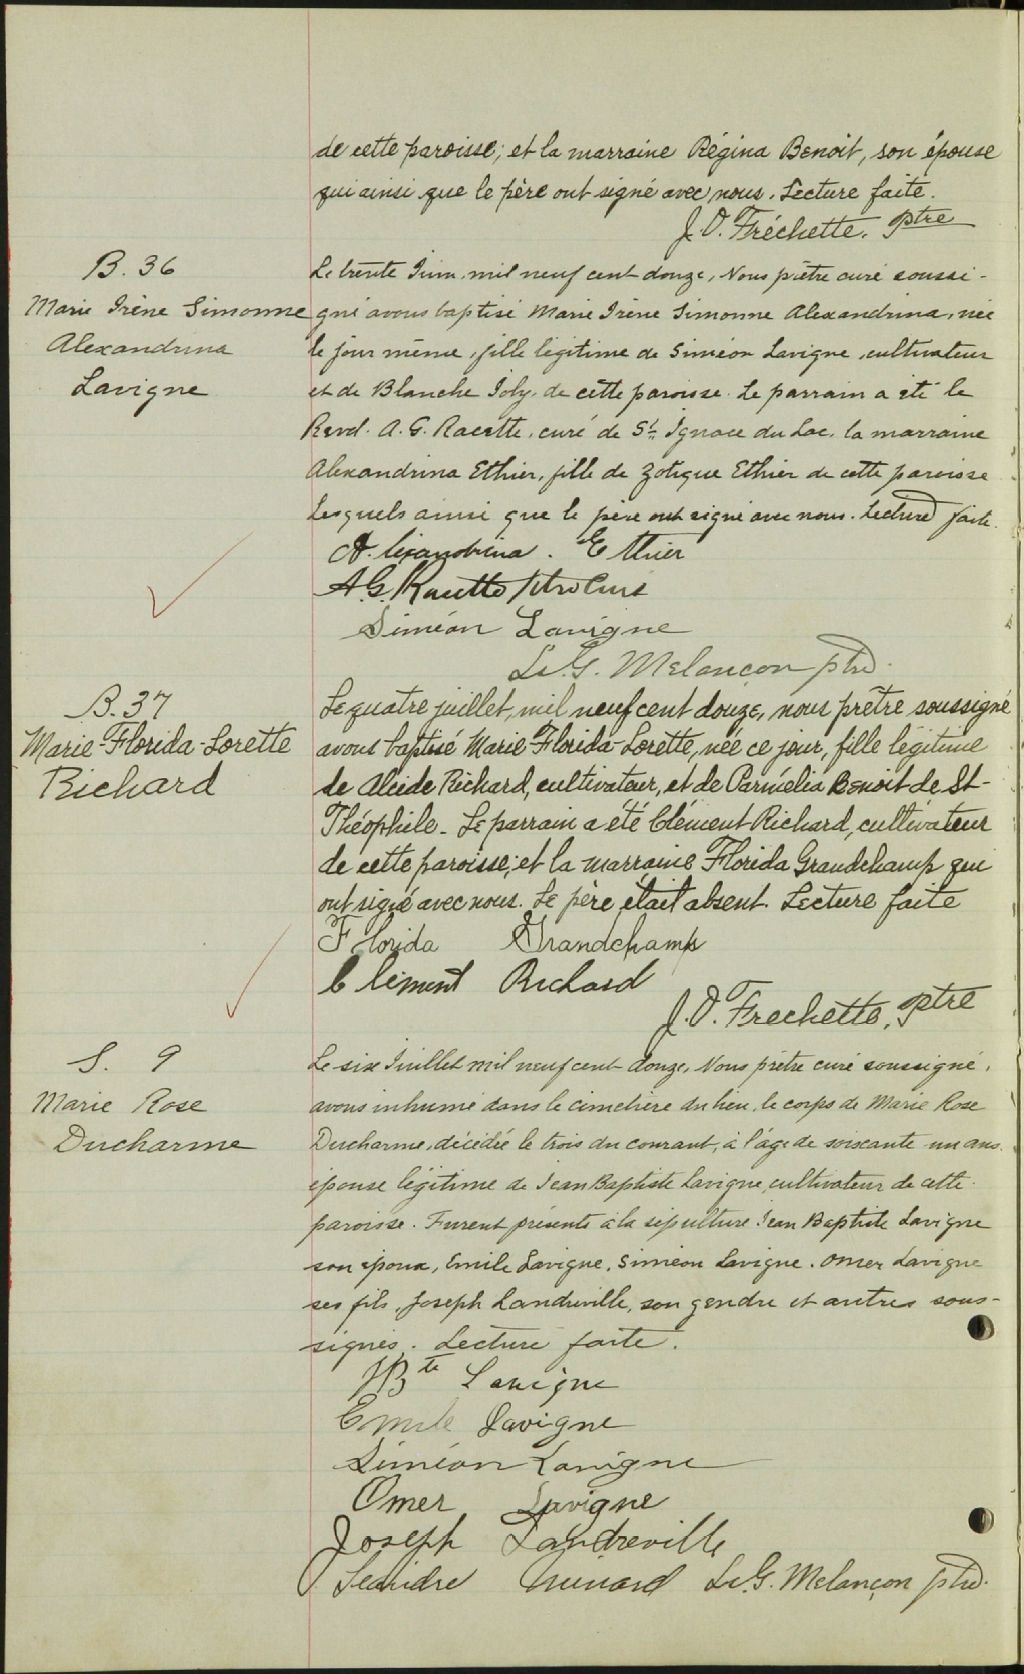 de cette paroisse; et la marraine Régina Benoit, son épouse
qui ainsi que le père ont signé avec nous. Lecture faite.
J.O. Fréchette. Ptre
B. 36
Marie Irène Simonne
Alexandrina
Lavigne
Le trente Juin, mil neuf cent douze, Nous prêtre curé soussi-
gné avons baptisé Marie Irène Simonne Alexandrina, née
le jour même, fille légitime de Siméon Lavigne, cultivateur
et de Blanche Joly, de cette paroisse. Le parrain a été le
Revd. A. G. Racette, curé de St. Ignace du Lac, la marraine
Alexandrina Ethier, fille de Zotique Ethier de cette paroisse
Lesquels ainsi que le père ont signé avec nous. Lecture faite.
Alexandrina. Ethier
A.G. Racette Ptre Curé
Siméon Lavigne
L.G. Melançon ptre.
B. 37
Marie-Florida-Lorette
Richard
Le quatre juillet, mil neuf cent douze, nous prêtre soussigné
avons baptisé Marie-Florida-Lorette, née ce jour, fille légitime
de Alcide Richard, cultivateur, et de Parmélia Benoit de St-
Théophile. Le parrain a été Clément Richard, cultivateur
de cette paroisse; et la marraine Florida Grandchamp qui
ont signé avec nous. Le père était absent. Lecture faite
Florida Grandchamp
Clément Richard
J.O. Frechette, Ptre
S. 9
Marie Rose
Ducharme
Le six Juillet mil neuf cent douze, Nous prêtre curé soussigné,
avons inhumé dans le cimetière du lieu, le corps de Marie Rose
Ducharme, décédée le trois du courant, à l'âge de soixante un ans.
épouse légitime de Jean Baptiste Lavigne, cultivateur de cette
paroisse. Furent présents à la sépulture Jean Baptiste Lavigne
son époux, Emile Lavigne, Siméon Lavigne, Omer Lavigne
ses fils, Joseph Landreville, son gendre et autres sous-
signés. Lecture faite.
JBte Lavigne
Emile Lavigne
Siméon Lavigne
Omer Lavigne
Joseph Landreville
L.G. Melançon ptre.